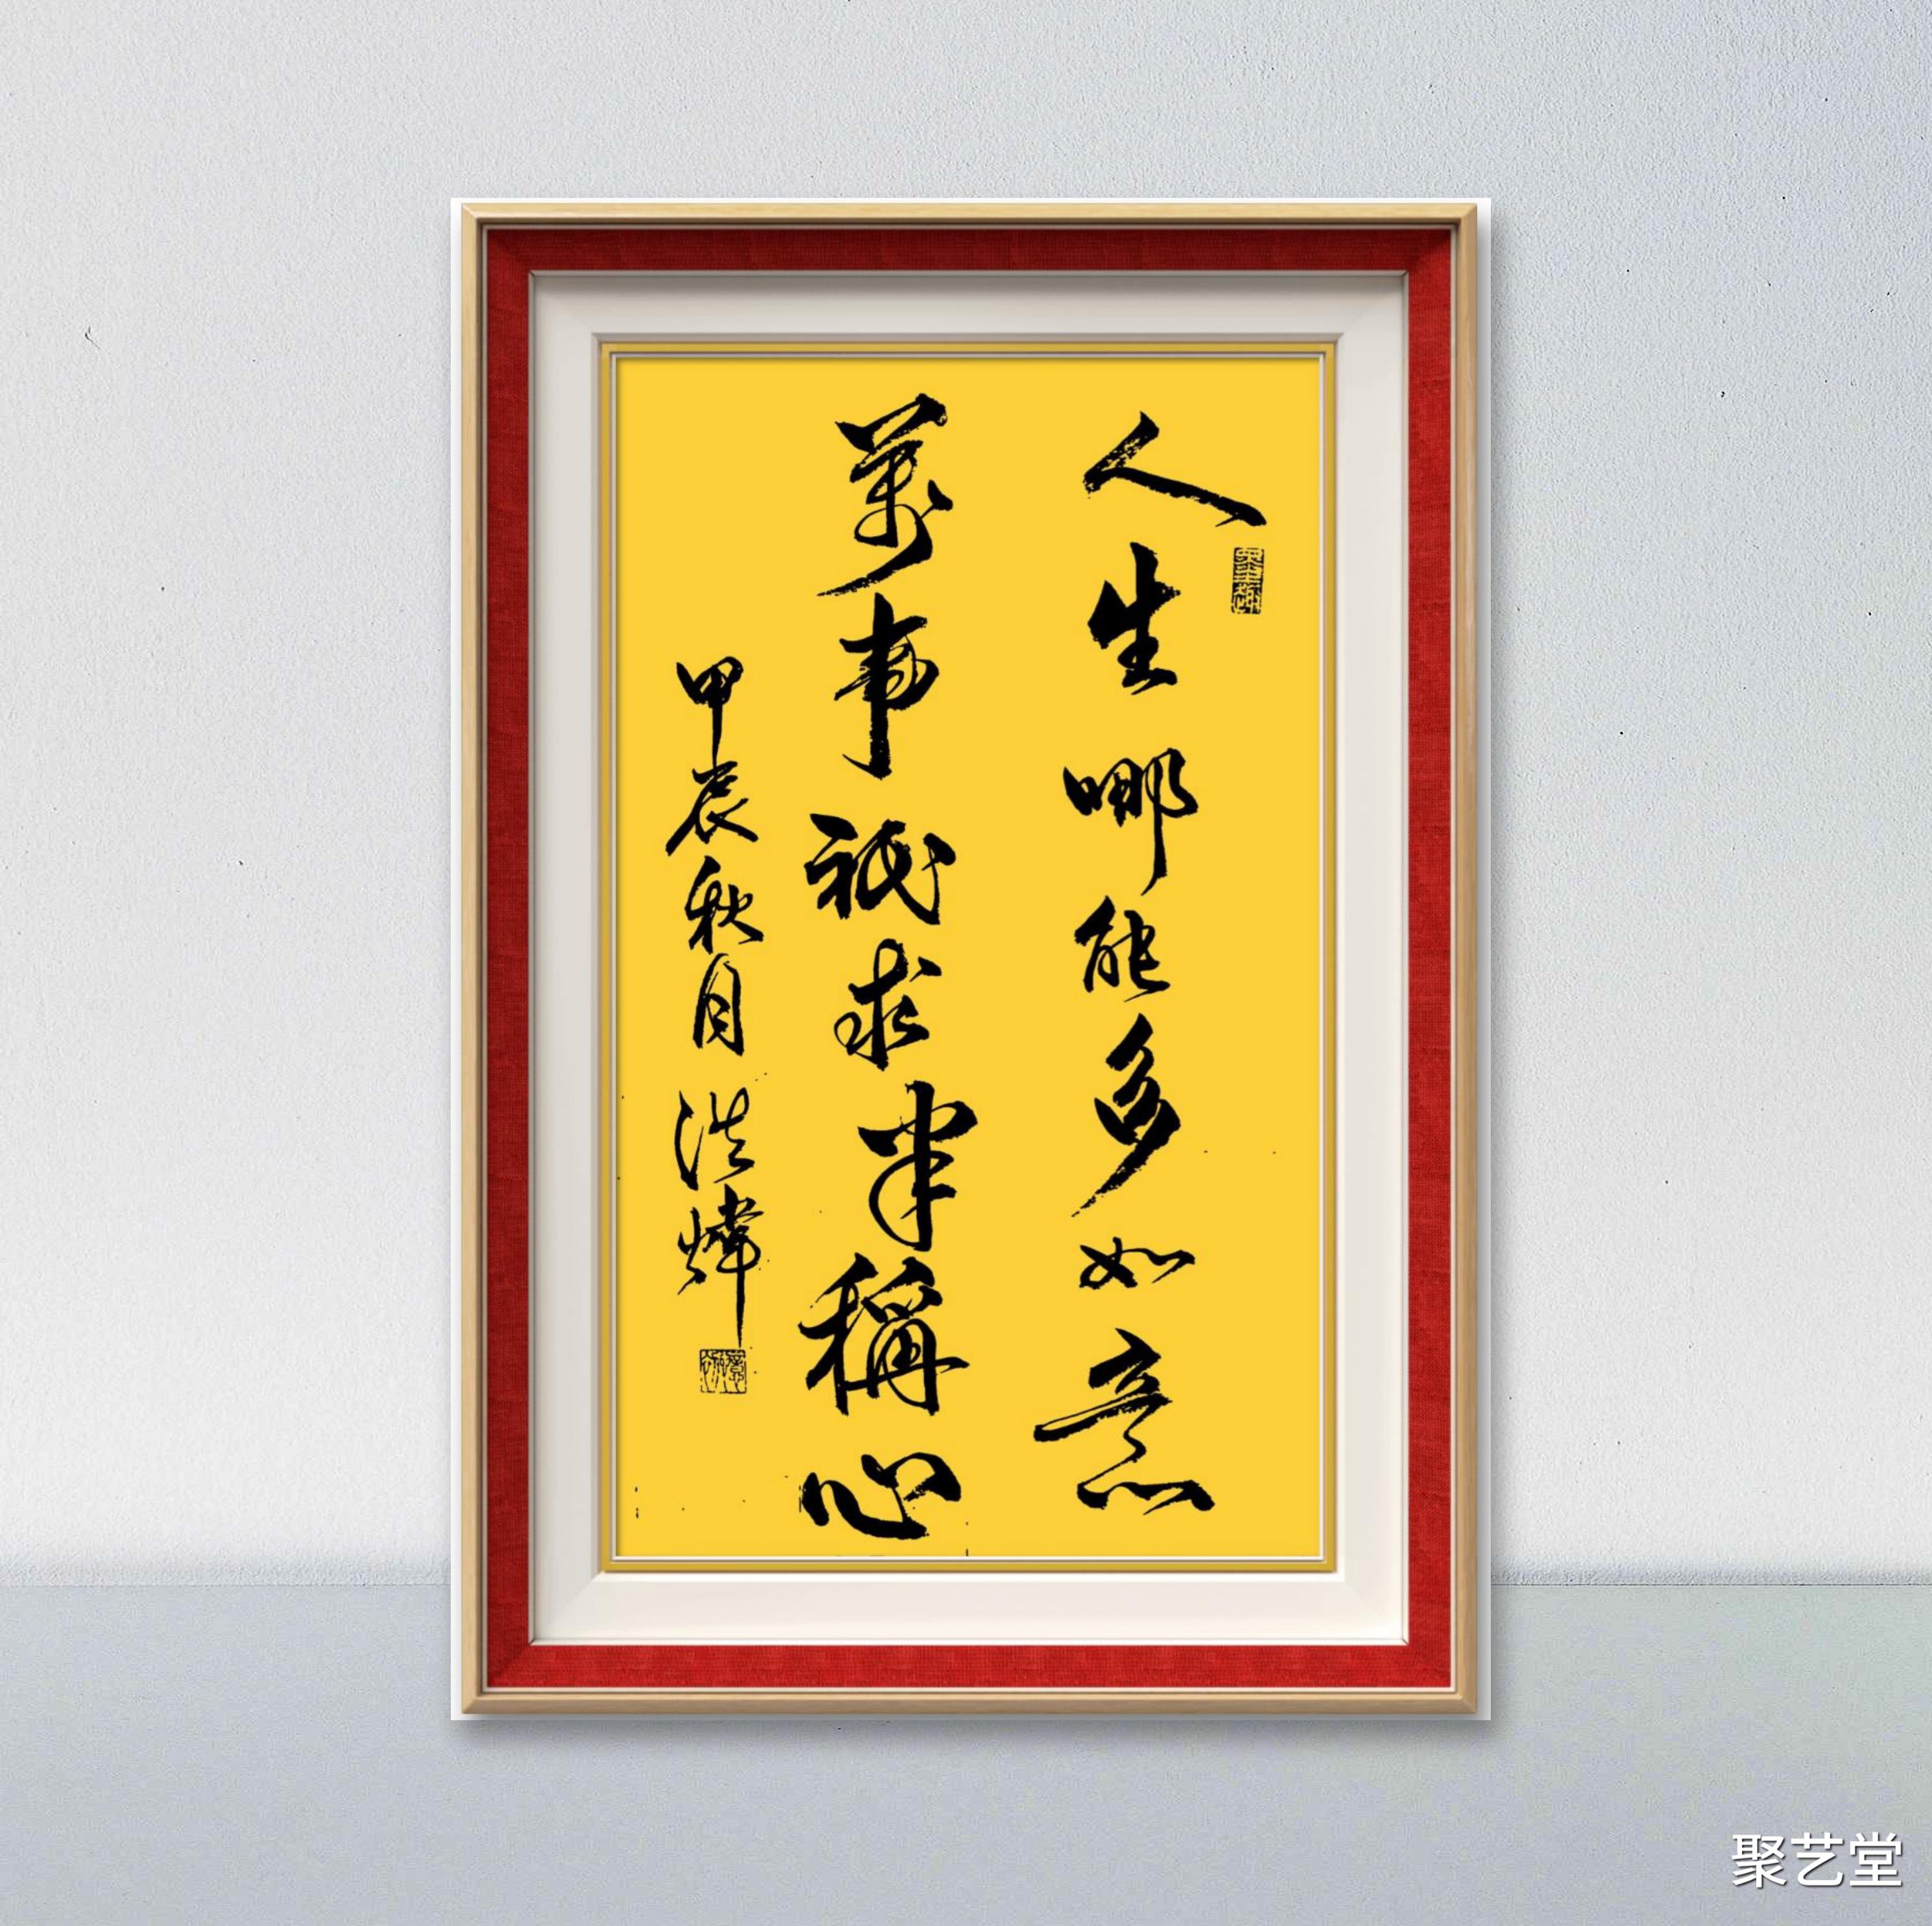 人生哪能多如意
萬事祇求半稱心
甲辰秋月 洪煒
聚艺堂